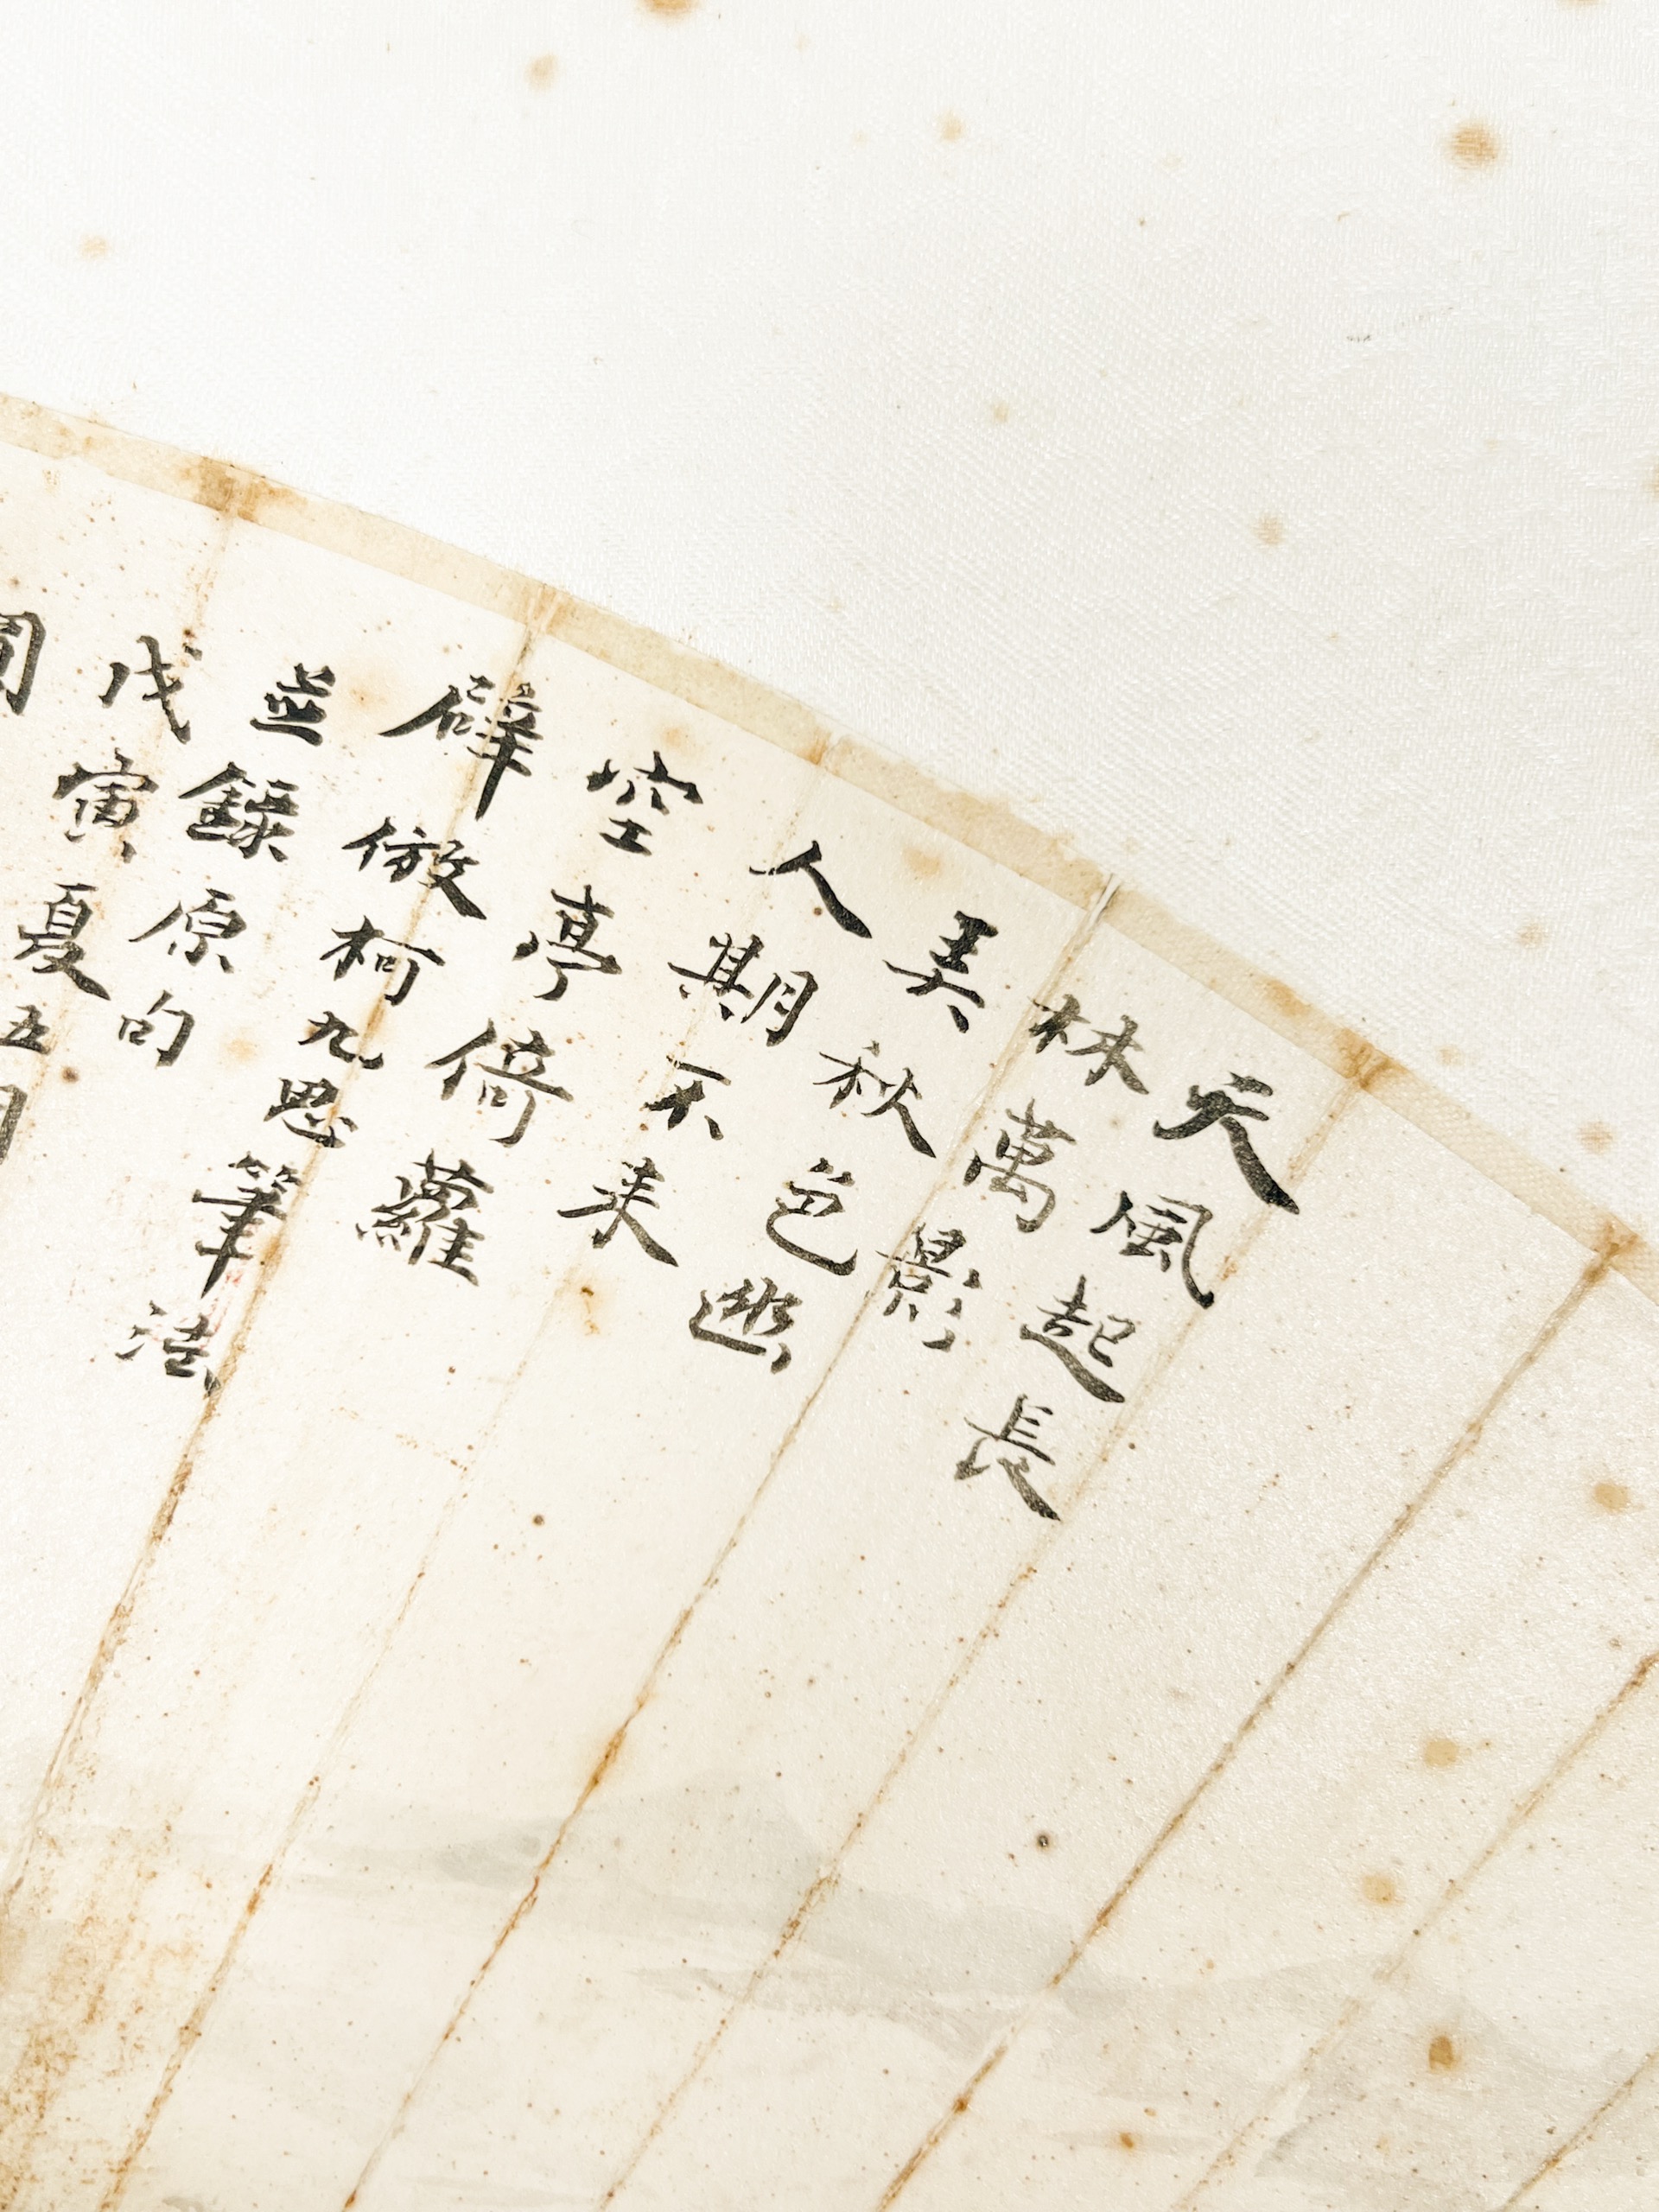 天風起長
林萬影
美秋色幽
人期不来
空亭倚蘿
薜倣柯九思筆法
並錄原句
戊寅夏五月